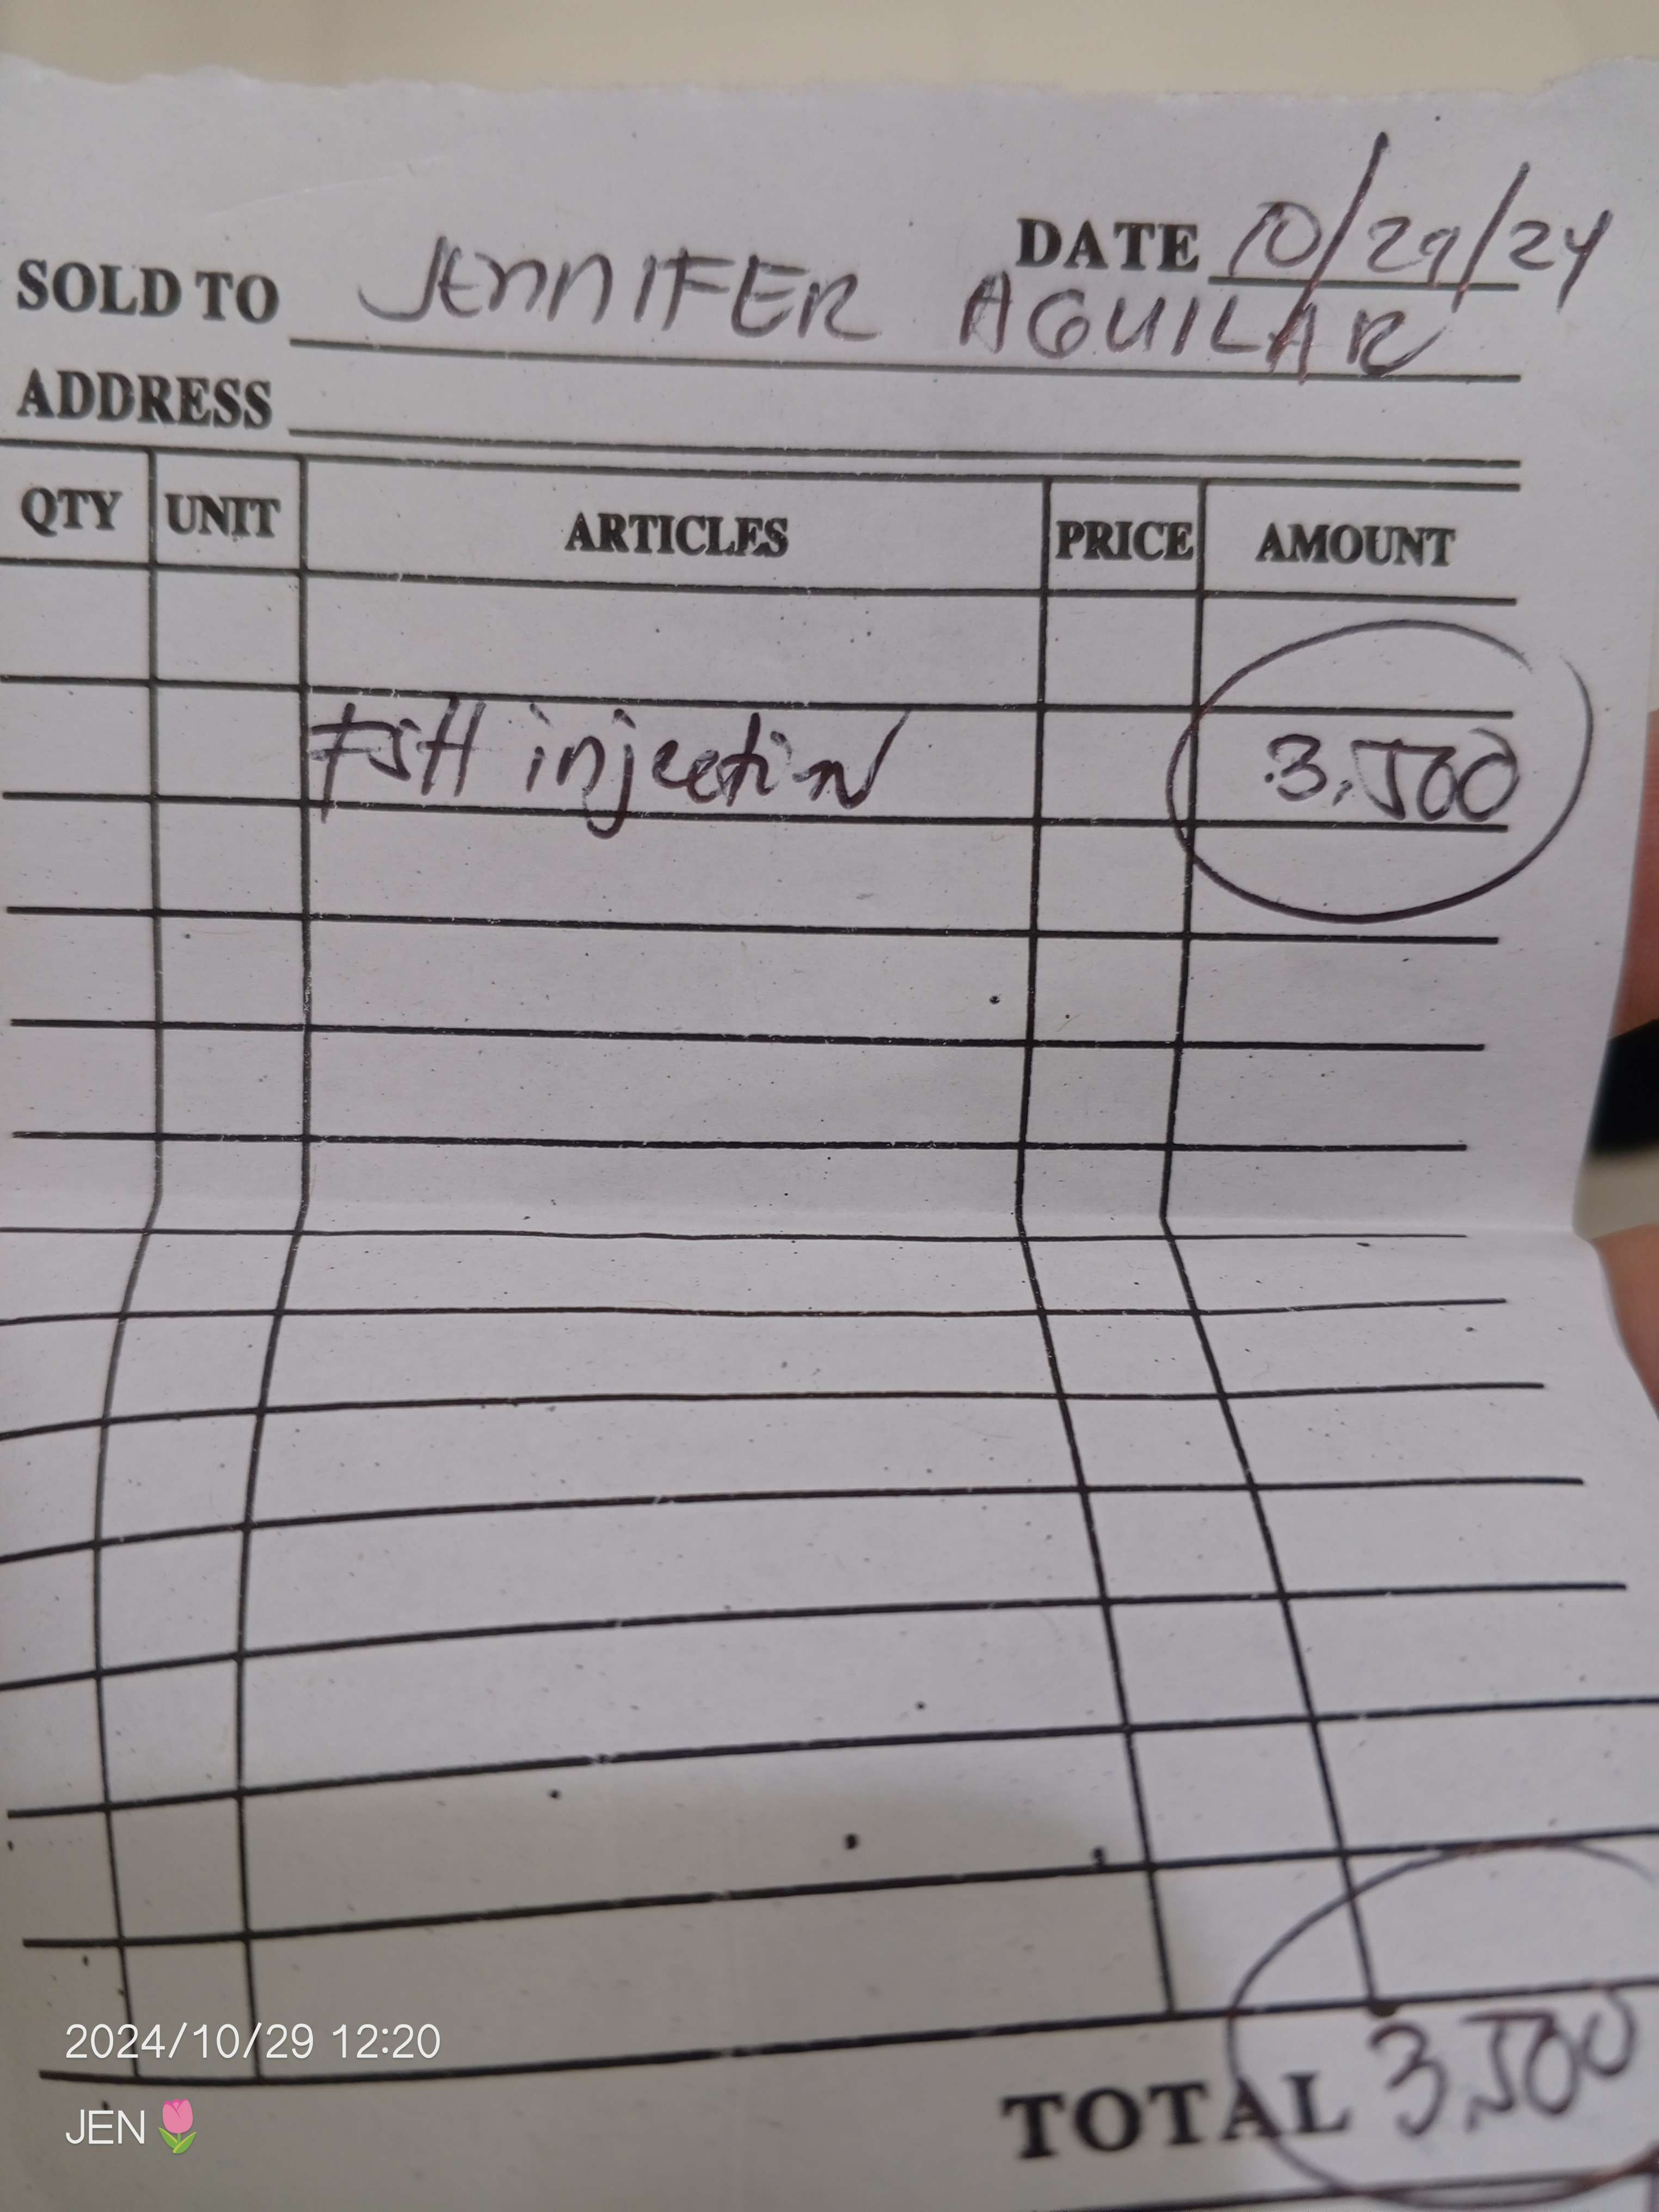 DATE 10/29/24
SOLD TO JENNIFER AGUILAR
ADDRESS
QTY UNIT ARTICLES PRICE AMOUNT
FSH injection 3,500
TOTAL 3,500
2024/10/29 12:20
JEN🌷